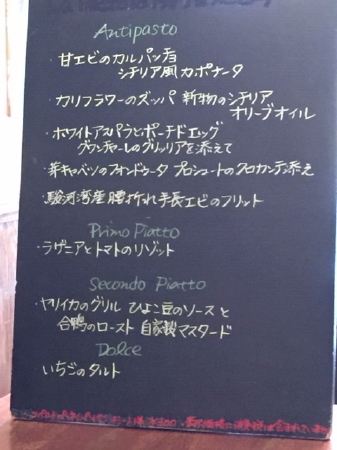 Antipasto
・甘エビのカルパッチョ
シチリア風カポナータ
・カリフラワーのズッパ 新物のシチリア
オリーブオイル
・ホワイトアスパラとポーチドエッグ
グアンチャーレのグリッリアを添えて
・芽キャベツのフォンドゥータ プロシュートのクロカンテ添え
・駿河湾産 腰折れ手長エビのフリット
Primo Piatto
・ラザニアとトマトのリゾット
Secondo Piatto
・ヤリイカのグリル ひよこ豆のソース と
合鴨のロースト 自家製マスタード
Dolce
・いちごのタルト